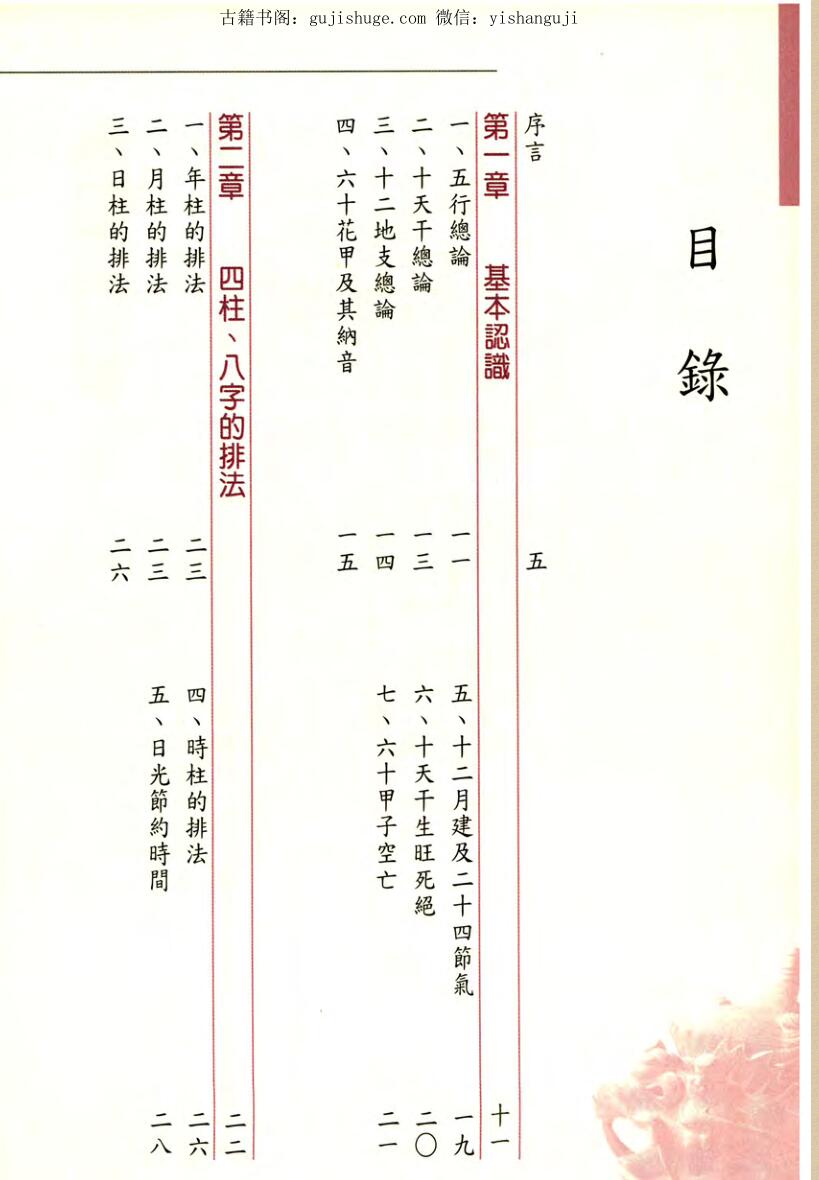 古籍书阁：gujishuge.com 微信：yishanguji
目錄
序言 五
第一章 基本認識 十一
一、五行總論 一一
五、十二月建及二十四節氣 一九
二、十天干總論 一三
六、十天干生旺死絕 二〇
三、十二地支總論 一四
七、六十甲子空亡 二一
四、六十花甲及其納音 一五
第二章 四柱、八字的排法 二二
一、年柱的排法 二三
四、時柱的排法 二六
二、月柱的排法 二三
五、日光節約時間 二八
三、日柱的排法 二六